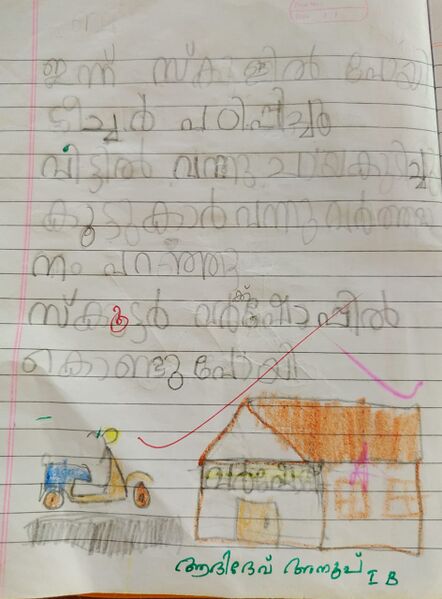 ഇന്ന് സ്കൂളിൽ പോയി
ടീച്ചർ പഠിപ്പിച്ചു
വീട്ടിൽ വന്നു ചായ കുടിച്ചു
കൂട്ടുകാർ വന്നു വർത്തമാ
നം പറഞ്ഞു
സ്കൂട്ടർ വർക്ക്ഷോപ്പിൽ
കൊണ്ടു പോയി
ആദിദേവ് അനൂപ് I B